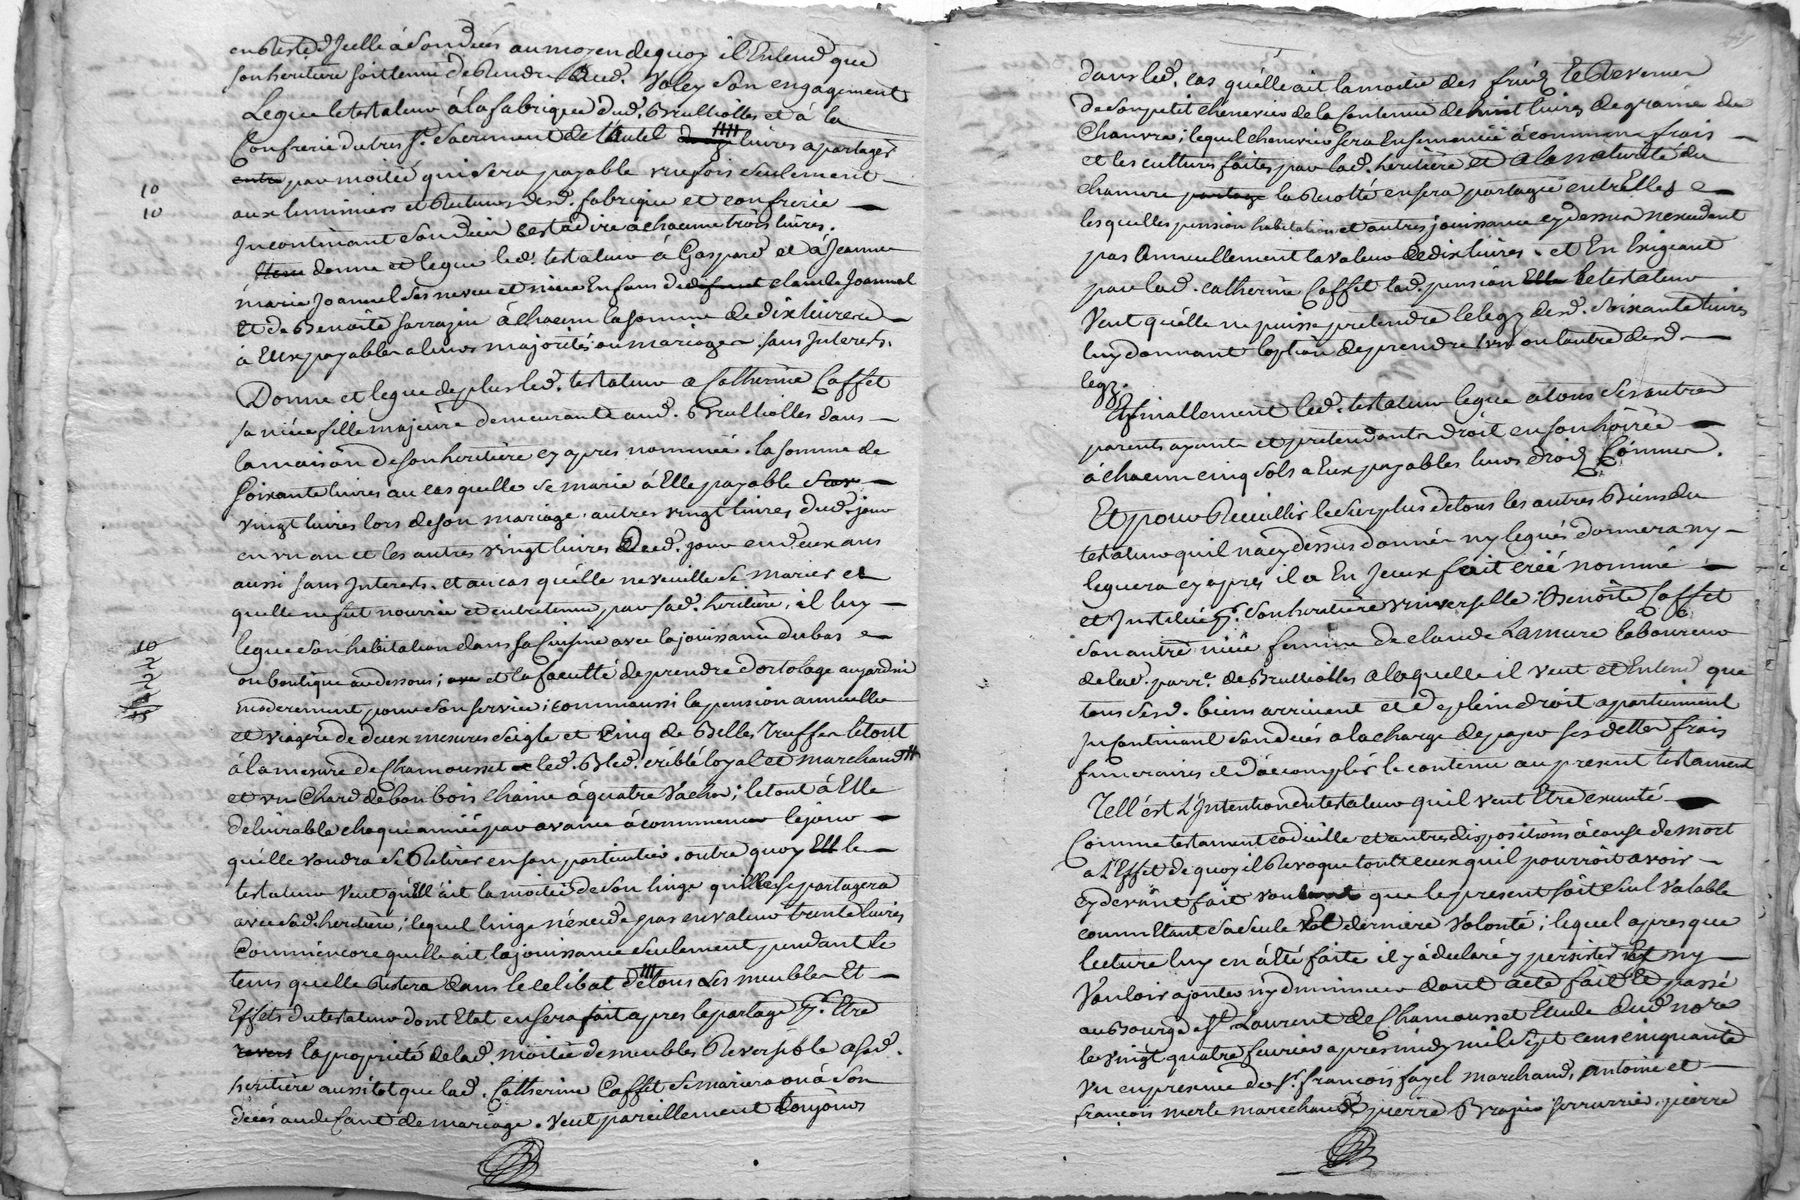 en Reste d'Jcelle à Son deces au moyen de quoy il Entend que
Son heritiere soit tenue de Rendre aud. Voley Son engagement
Legue le testateur à la fabrique dud. Brullioles et à la
Confrerie du tres St. Sacrement de l'autel livres a partager
entre par moitié qui sera payable une fois seulement
10
aux luminiers et Recteurs desd. fabrique et confrerie
10
Jncontinant Son deces c'est à dire à chacune trois livres.
Item donne et legue led. testateur à Gaspard et à Jeanne
marie Joannel ses neveu et niece Enfans de defunt claude Joannel
Et de Benoite Sarrazin à chacun la somme de dix livres
a Eux payables a leurs majorités ou mariages. sans Interets.
Donne et legue de plus led. testateur a Catherine Caffet
sa niece fille majeure demeurante aud. Brullioles dans
la maison de son heritiere cy apres nommée. la somme de
Soixante livres au cas quelle se marie à Elle payable Scav
vingt livres lors de son mariage. autres vingt livres dud. jour
en un an et les autres vingt livres Dud. jour en deux ans
aussi sans Interets. et au cas qu'elle ne veuille se marier et
quelle ne fut nourrie et entretenue par sad. heritiere, il luy
legue son habitation dans sa Cuisine avec la jouissance du bas
ou boutique au dessous; et la faculté de prendre d'ortolage au jardin
moderement pour son service; comme aussi la pension annuelle
et viagere de deux mesures Seigle et Cinq de Belles truffes le tout
à la mesure de Chamousset led. Bled. criblé loyal et marchand
et un Chard de bon bois Chaine à quatre Vaches; le tout à Elle
delivrable chaque année par avance à commencer le jour
qu'elle voudra se Retirer en son particulier. outre quoy Ell le
testateur veut qu'Ell' ait la moitié de son linge qu'elle se partagera
avec sad. heritiere; lequel linge n'excede pas en valeur trente livres
Comm'encore quelle ait la jouissance seulement pendant le
tems quelle Restera dans le celibat de tous Les meubles Et
Effets du testateur dont Etat en sera fait apres le partage Pr. Etre
revers la proprieté de lad. moitié de meubles Reversible a sad.
heritiere aussitot que lad. Catherine Caffet se mariera ou à son
deces au defaut de mariage. Veut pareillement toujours
dans led. cas qu'elle ait la moitié des fruid et Revenu
de son petit chenevier de la Contenue de huit livres de graine de
Chanvre; lequel chenevier sera Ensemencé à commun frais
et les cultures faites par lad. heritiere et a la maturité du
chanvre partage la Recolte en sera partagée entr'Elles
les quelles pension habitation et autres jouissance cy dessus n'excedent
pas annuellement la valeur de dix livres. et En Exigeant
par lad. Catherine Caffet lad. pension Elle le testateur
Veut qu'elle ne puisse pretendre le legz desd. Soixante livres
luy donnant l'option de prendre l'un ou l'autre desd.
legz.
Et finallement led. testateur legue a tous ses autres
parents ayants et pretendants droit en son hoirée
à chacun cinq sols a Eux payables leurs droid Connus.
Et pour Recuillir le surplus de tous les autres Biens du
testateur qu'il n'a cy dessus donnés ny legués donnera ny
leguera cy apres il a En Jceux fait créé nommé
et Jnstitué Pr. Son heritiere universelle Benoite Caffet
Son autre niece femme de claude Lamure laboureur
de lad. parre. de Brullioles a laquelle il veut et Entend que
tous sesd. biens arrivent et de plein droit apartiennent
Incontinant son deces a la charge de payer ses dettes frais
funeraires et d'acomplir le contenu au present testament
Tell' est L'Intention du testateur qu'il veut Etre executé
Comme testament codicille et autres dispositions à cause de mort
a L'Effet de quoy il Revoque tout ceux qu'il pourroit avoir
cy devant fait voulant que le present soit seul valable
comm' Etant sa seule Et derniere volonté; lequel apres que
lecture luy en à été faite il y à declaré y persister Et ny
Vouloir ajouter ny diminuer dont acte fait Et passé
au Bourg de St. Laurent de Chamousset Etude dud. no're
le vingt quatre fevrier apres midy mil sept cens cinquante
un en presence de Sr. françois fayel marchand, antoine et
françois merle marechaud pierre Brazier serrurrier. pierre